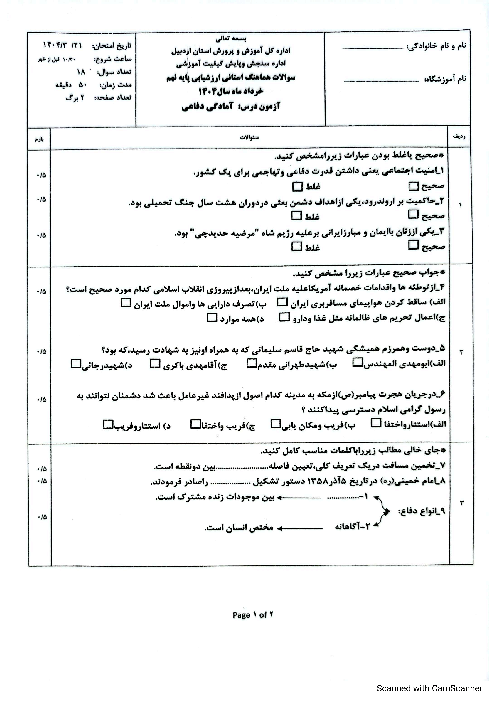 بسمه تعالی
اداره کل آموزش و پرورش استان اردبیل
اداره سنجش وپایش کیفیت آموزشی
سوالات هماهنگ استانی ارزشیابی پایه نهم
خرداد ماه سال۱۴۰۴
آزمون درس: آمادگی دفاعی
نام و نام خانوادگی:
نام آموزشگاه:
تاریخ امتحان: ۱۴۰۴/۳/۲۱
ساعت شروع: ۱۰/۳۰ قبل از ظهر
تعداد سوال: ۱۸
مدت زمان: ۵۰ دقیقه
تعداد صفحه: ۲ برگ
ردیف سئوالات بارم
*صحیح یاغلط بودن عبارات زیررامشخص کنید.
۱_امنیت اجتماعی یعنی داشتن قدرت دفاعی وتهاجمی برای یک کشور. ۰/۵
صحیح غلط
۲_حاکمیت بر اروندرود،یکی ازاهداف دشمن بعثی دردوران هشت سال جنگ تحمیلی بود. ۰/۵
صحیح غلط
۱
۳_یکی اززنان باایمان و مبارزایرانی برعلیه رژیم شاه "مرضیه حدیدچی" بود. ۰/۵
صحیح غلط
*جواب صحیح عبارات زیررا مشخص کنید.
۴_ازتوطئه ها واقدامات خصمانه آمریکاعلیه ملت ایران،بعدازپیروزی انقلاب اسلامی کدام مورد صحیح است؟ ۰/۵
الف) ساقط کردن هواپیمای مسافربری ایران ب)تصرف دارایی ها واموال ملت ایران
ج)اعمال تحریم های ظالمانه مثل غذا ودارو د)همه موارد
۲
۵_دوست وهمرزم همیشگی شهید حاج قاسم سلیمانی که به همراه اونیز به شهادت رسید،که بود؟ ۰/۵
الف)ابومهدی المهندس ب)شهیدطهرانی مقدم ج)آقامهدی باکری د)شهیدرجائی
۶_درجریان هجرت پیامبر(ص)ازمکه به مدینه کدام اصول ازپدافند غیرعامل باعث شد دشمنان نتوانند به ۰/۵
رسول گرامی اسلام دسترسی پیداکنند؟
الف)استتارواختفا ب)فریب ومکان یابی ج)فریب واختفا د) استتاروفریب
*جای خالی مطالب زیرراباکلمات مناسب کامل کنید.
۷_تخمین مسافت دریک تعریف کلی،تعیین فاصله....................بین دونقطه است. ۰/۵
۸_امام خمینی(ره) درتاریخ ۵آذر۱۳۵۸ دستور تشکیل .............. راصادر فرمودند. ۰/۵
۳
۹_انواع دفاع:
۱-............ بین موجودات زنده مشترک است.
۲-آگاهانه مختص انسان است. ۰/۵
Page ۱ of ۲
Scanned with CamScanner